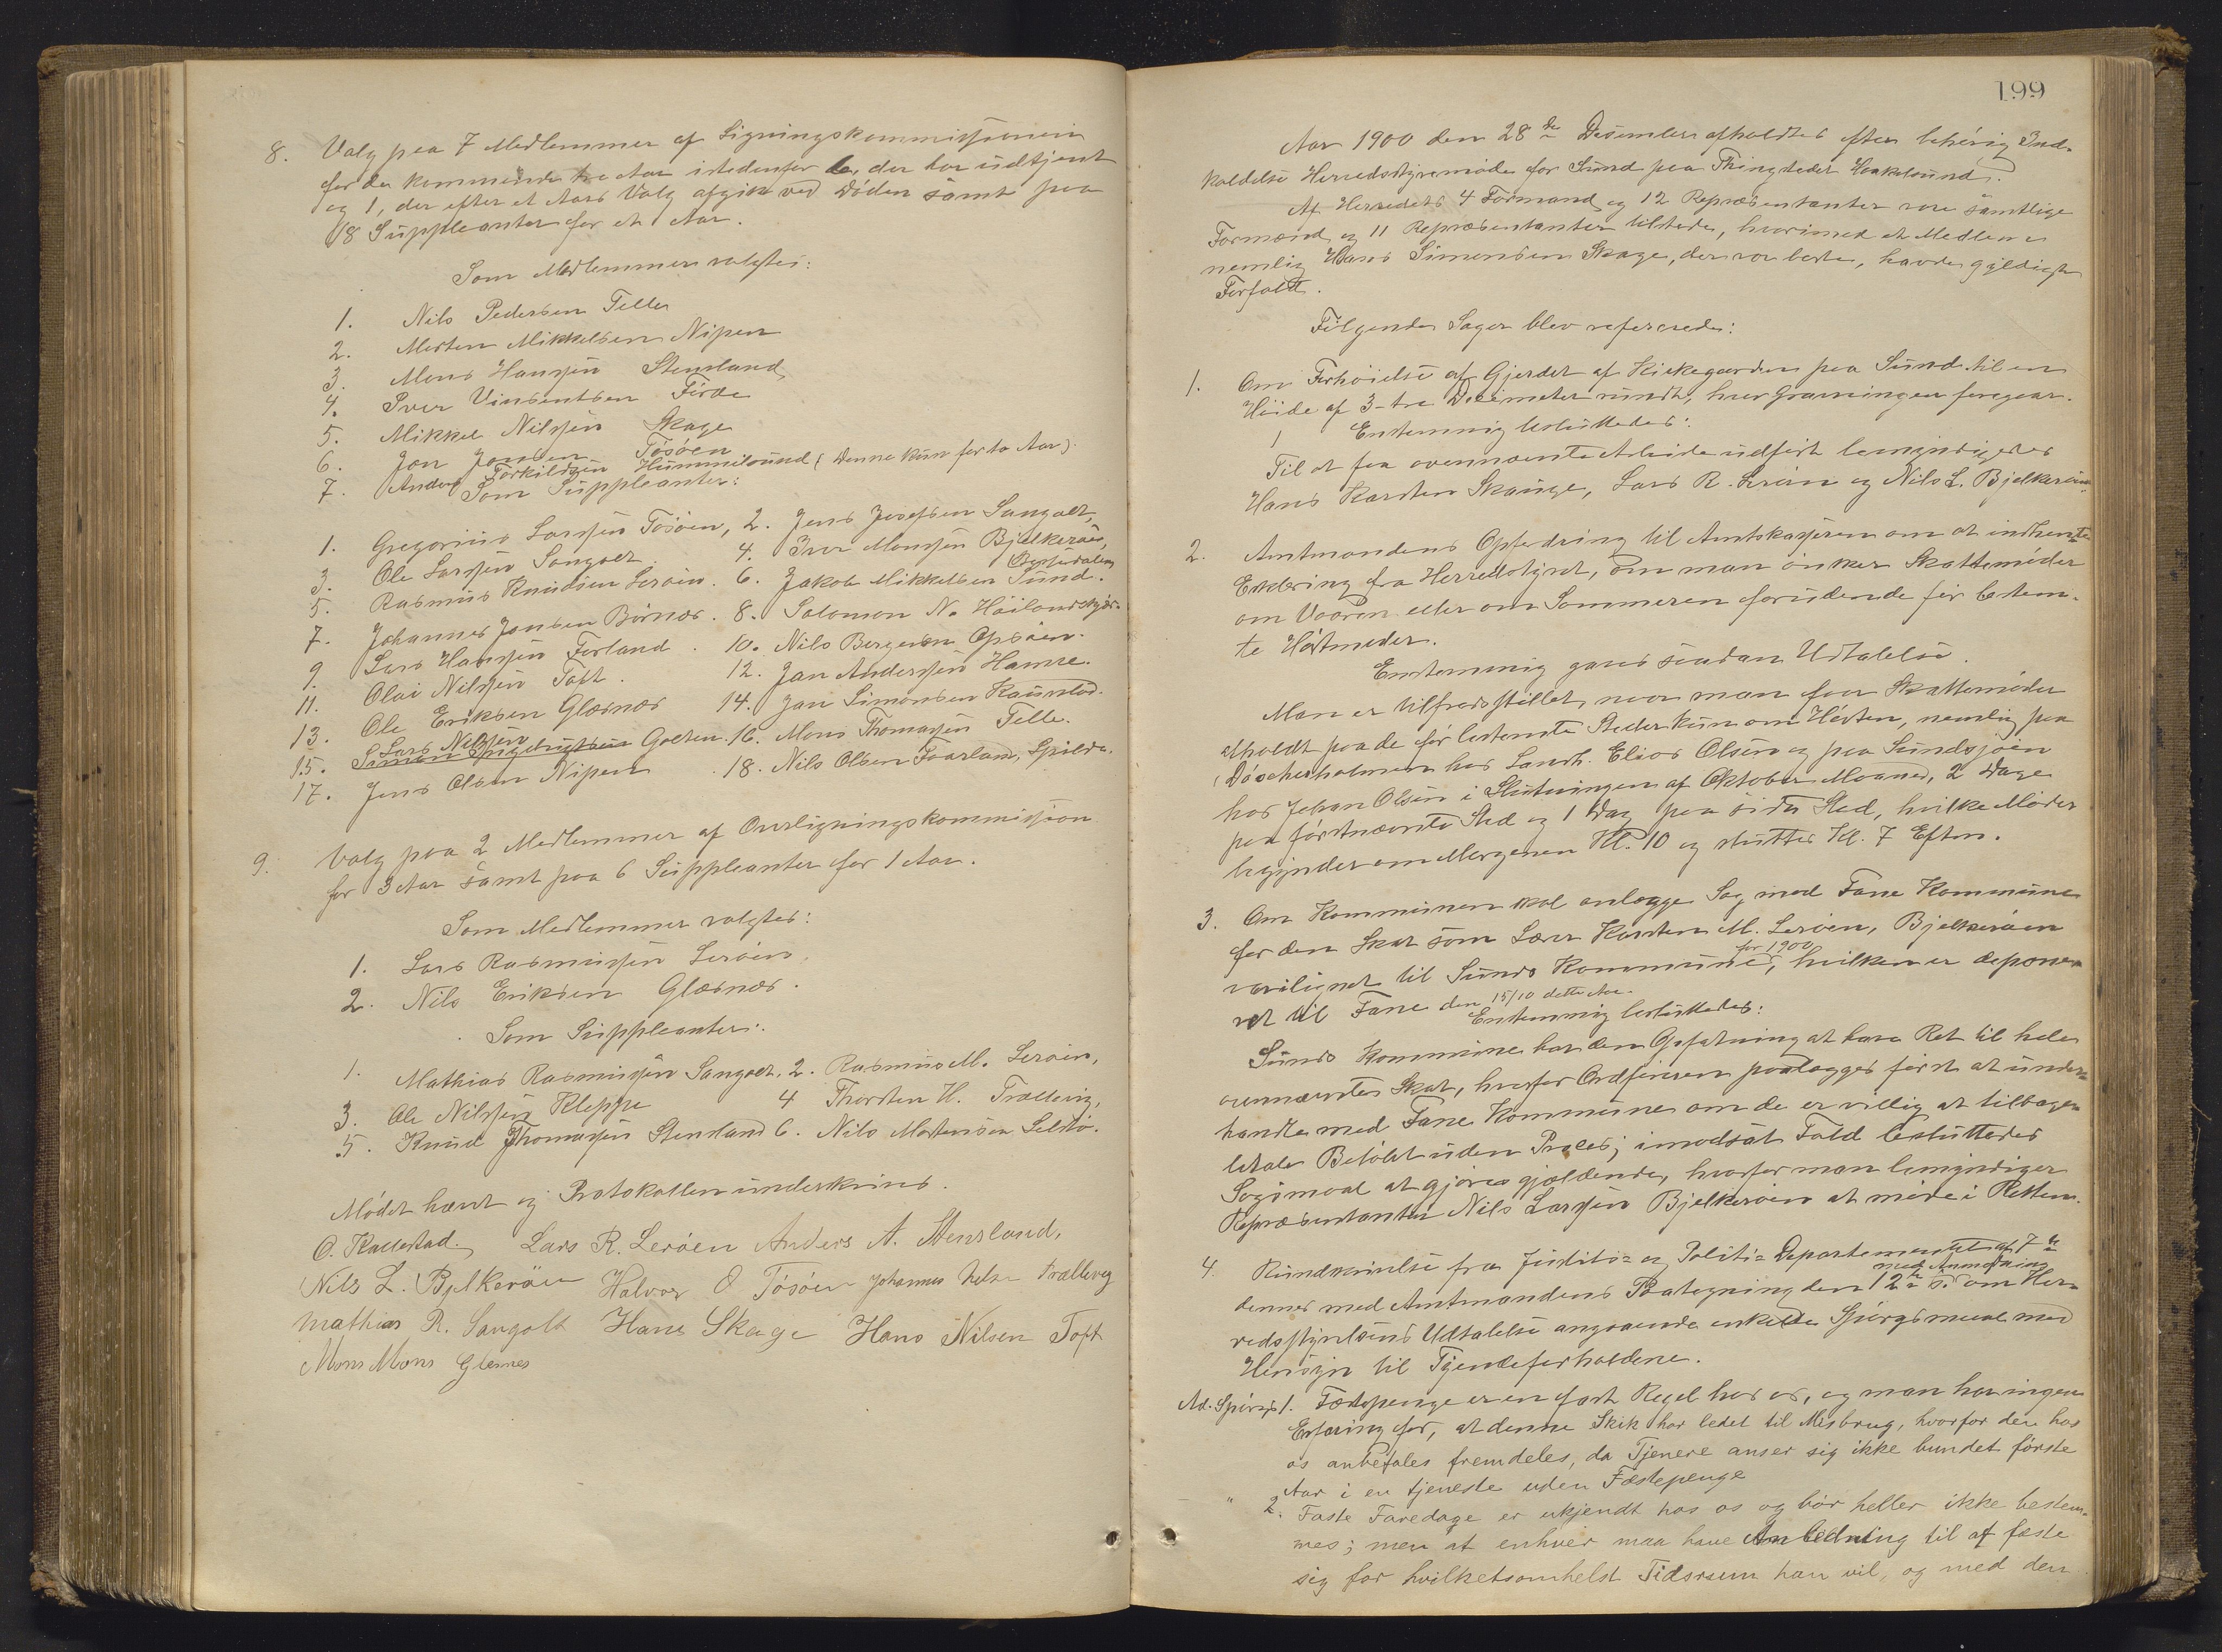 8. Valg paa 7 Medlemmer af Ligningskommissionen
for de kommende tre Aar istedenfor 6, der har udtjent
og 1, der efter et Aars Valg afgik ved Døden samt paa
18 Suppleanter for et Aar.
Som Medlemmer valgtes:
1. Nils Pedersen Telle
2. Morten Mikkelsen Nipen
3. Mons Hanssen Stensland
4. Iver Vinsentsen Førde
5. Mikkel Nilssen Skage
6. Jon Jonsen Tösöen
7. Anders Torkildsen Hummelsund (Denne kun for to Aar).
Som Suppleanter:
1. Gregorius Larssen Tösöen, 2. Jens Josefsen Sangolt,
3. Ole Larssen Sangolt 4. Iver Monssen Bjelkeröen,
5. Rasmus Knudsen Leröen. 6. Jakob Mikkelsen Sund.
7. Johannes Jonsen Börnes. 8. Salomon N. Höilandskjær
9. Lars Hanssen Forland. 10. Nils Bergesen Opsöen.
11. Olai Nilssen Toft. 12. Jan Anderssen Hamre.
13. Ole Eriksen Glæsnæs 14. Jan Simonsen Kausland.
15. Lars Nilssen Golten. 16. Mons Thomassen Telle.
17. Jens Olsen Nipen. 18. Nils Olsen Foarland, Spilde.
9. Valg paa 2 Medlemmer af Overligningskommission
for 3 Aar samt paa 6 Suppleanter for 1 Aar.
Som Medlemmer valgtes:
1. Lars Rasmussen Leröen,
2. Nils Eriksen Glæsnæs.
Som Suppleanter:
1. Mathias Rasmussen Sangolt. 2. Rasmus M. Leröen,
3. Ole Nilssen Kleppe 4 Thorsten H. Trællevig,
5. Knud Thomassen Stensland 6. Nils Mortensen Selstö.
Mödet hævet og Protokollen underskrives.
O. Kallestad. Lars R. Leröen Anders A. Stensland,
Nils L. Bjelkeröen Halvor O Tösöen Johannes Trællevig
Mathias R. Sangolt Hans Skage Hans Nilsen Toft
Mons Mons Glesnes
199
Aar 1900 den 28de Desember afholdtes efter behörig Ind-
kaldelse Herredsstyremöde for Sund paa Thingstedet Haakelsund.
Af Herredets 4 Formænd og 12 Repræsentanter vare samtlige
Formænd og 11 Repræsentanter tilstede, hvorimod et Medlem
nemlig Hans Simonsen Skage, der var borte, havde gyldigt
Forfald.
Fölgende Sager blev refererede:
1. Om Forhöielse af Gjerdet af Kirkegaarden paa Sund til en
Höide af 3-tre Decemeter rundt, hvor Gravningen foregaar.
Enstemmig besluttedes:
Til at faa ovennævnte Arbeide udfört bemyndigedes
Hans Karsten Skauge, Lars R. Leröen og Nils L. Bjelkeröen.
2. Amtmandens Opfordring til Amtskasseren om at indhente
Erklæring fra Herredsstyret, om man önsker Skattemöder
om Vaaren eller om Sommeren forudende för bestem-
te Höstmöder.
Enstemmig gaves saadan Udtalelse.
Man er tilfredsstillet, naar man faar Skattemöder
afholdt paa de för bestemte Steder kun om Hösten, nemlig paa
hos Landh. Elias Olsen og paa Sundsjöen
hos Johan Olsen i Slutningen af Oktober Maaned, 2 Dage
paa förstnævnte Sted og 1 Dag paa sidste Sted, hvilke Möder
begynder om Morgenen Kl. 10 og sluttes Kl. 7 Eftm.
3. Om Kommunen skal anlægge Sag mod Fane Kommune
for den Skat som Lærer Karsten M. Leröen, Bjelkeröen
var ilignet til Sunds Kommune for 1900, hvilken er depone-
ret til Fane den 15/10 dette Aar.
Enstemmig besluttedes:
Sunds Kommune har den Opfatning at have Ret til hele
ovennævnte Skat, hvorfor Ordföreren paalægges först at under-
handle med Fane Kommune om de er villig at tilbage-
betale Belöbet uden Proces; i modsat Fald besluttedes
Sögsmaal at gjöres gjældende, hvorfor man bemyndiger
Repræsentanten Nils Larssen Bjelkeröen at möde i Retten.
4. Rundskrivelse fra Justits- og Politi-Departementet af 7de
dennes med Amtmandens Paategning den 12te s. med Anmodning om Her-
redsstyrelsens Udtalelse angaaende enkelte Spörgsmaal med
Hensyn til Tjendeforholdene.
Ad. Spörgs 1. Fæstepenge er en fast Regel hos os, og man har ingen
Erfaring for, at denne Skik har ledet til Misbrug, hvorfor den hos
os anbefales fremdeles, da Tjenere anser sig ikke bundet förste
Aar i en tjeneste uden Fæstepenge
" 2. Faste Faredage er ukjendt hos os og bör heller ikke bestem-
mes; men at enhver maa have Anledning til at fæste
sig for hvilketsomhelst Tidsrum han vil, og med den